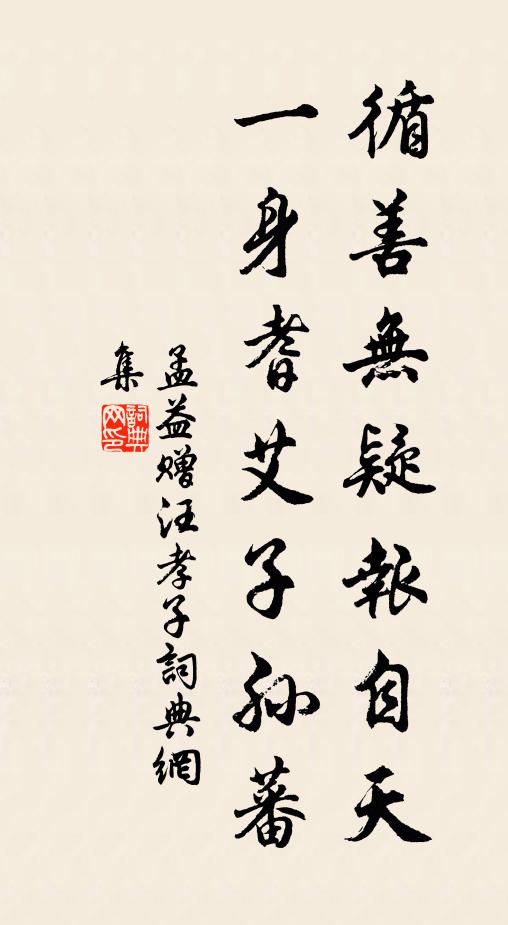 循善無疑報自天
一身耆艾子孫蕃
孟益赠汪孝子詞典網
集
詞典网印